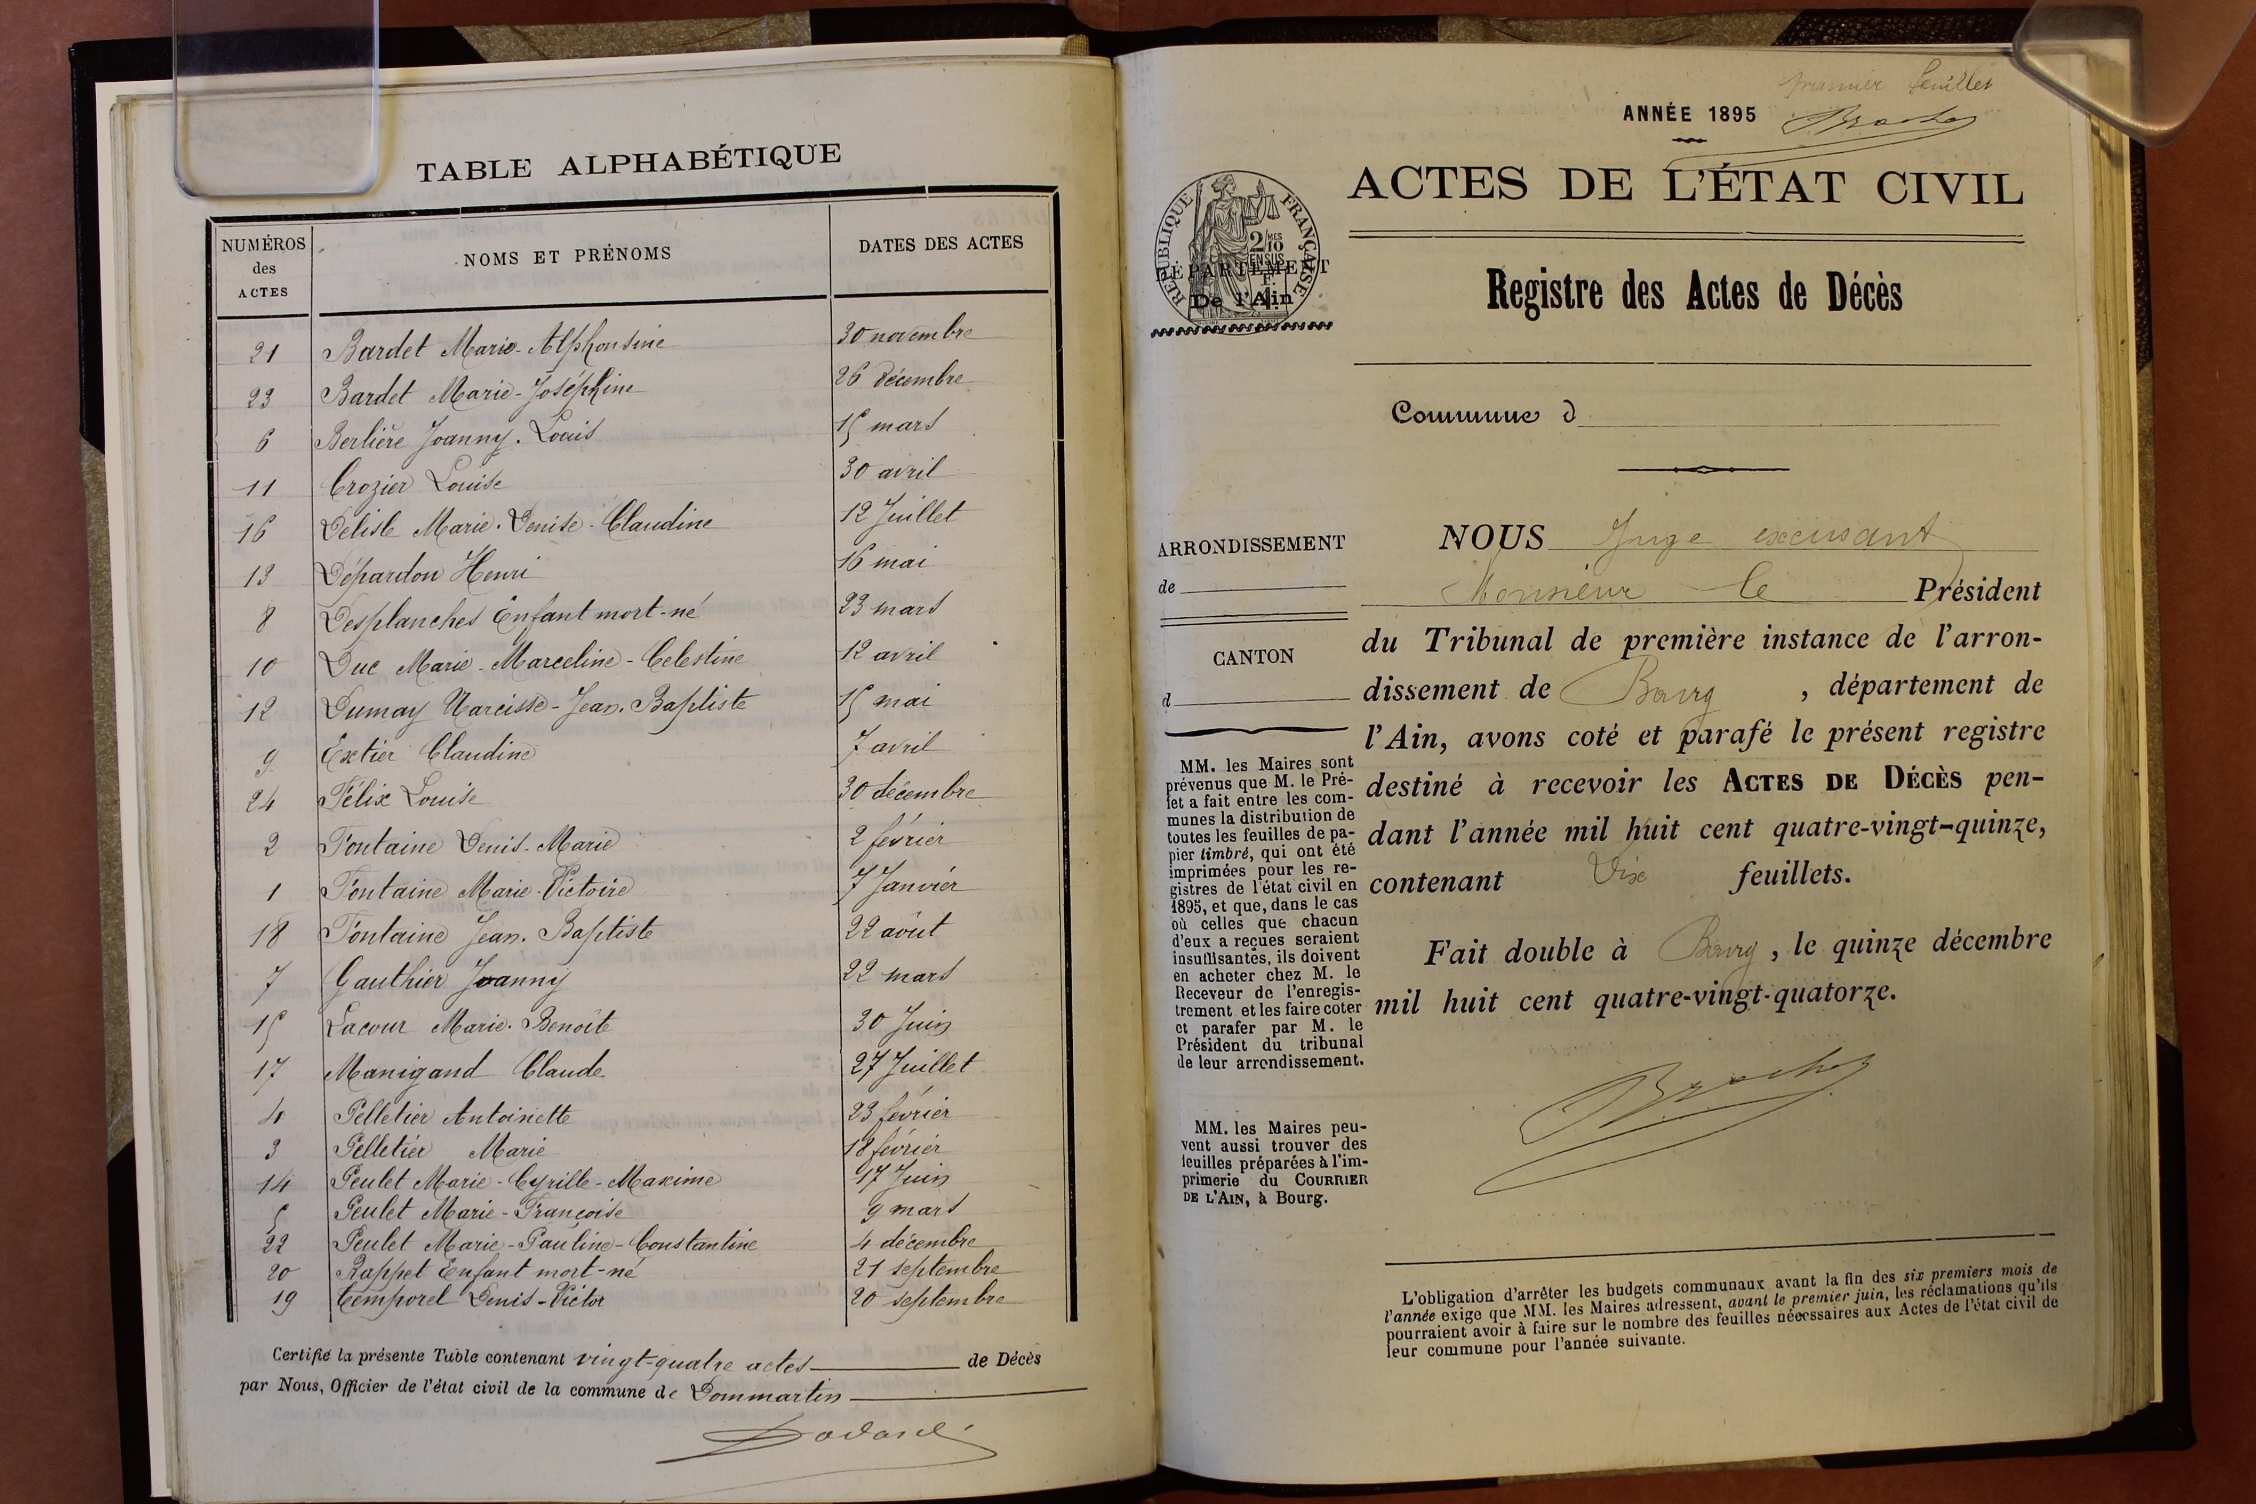 TABLE ALPHABÉTIQUE
NUMÉROS des ACTES NOMS ET PRÉNOMS DATES DES ACTES
21 Bardet Marie-Alphonsine 30 novembre
23 Bardet Marie-Joséphine 26 décembre
6 Berlière Joanny-Louis 15 mars
11 Crozier Louise 30 avril
16 Delisle Marie-Denise-Claudine 12 Juillet
13 Dépardon Henri 16 mai
8 Desplanches Enfant mort-né 23 mars
10 Duc Marie-Marceline-Celestine 12 avril
12 Dumay Narcisse-Jean-Baptiste 15 mai
9 Extier Claudine 7 avril
24 Félix Louise 30 décembre
2 Fontaine Denis-Marie 2 février
1 Fontaine Marie-Victoire 7 Janvier
18 Fontaine Jean-Baptiste 22 août
7 Gauthier Joanny 22 mars
15 Lacour Marie-Benoîte 30 Juin
17 Manigand Claude 27 Juillet
4 Pelletier Antoinette 23 février
3 Pelletier Marie 18 février
14 Peulet Marie-Cyrille-Maxime 17 Juin
5 Peulet Marie-Françoise 9 mars
22 Peulet Marie-Pauline-Constantine 4 décembre
20 Rappet Enfant mort-né 21 septembre
19 Temporel Denis-Victor 20 septembre
Certifié la présente Table contenant vingt-quatre actes de Décès
par Nous, Officier de l'état civil de la commune de Dommartin
premier feuillet
ANNÉE 1895
ACTES DE L'ÉTAT CIVIL
RÉPUBLIQUE FRANÇAISE
2/10 MES
EN SUS
DÉPARTEMENT
De l'Ain
Registre des Actes de Décès
Commune d
ARRONDISSEMENT
de
CANTON
d
MM. les Maires sont
prévenus que M. le Pré-
fet a fait entre les com-
munes la distribution de
toutes les feuilles de pa-
pier timbré, qui ont été
imprimées pour les re-
gistres de l'état civil en
1895, et que, dans le cas
où celles que chacun
d'eux a reçues seraient
insuffisantes, ils doivent
en acheter chez M. le
Receveur de l'enregis-
trement et les faire coter
et parafer par M. le
Président du tribunal
de leur arrondissement.
MM. les Maires peu-
vent aussi trouver des
feuilles préparées à l'im-
primerie du COURRIER
DE L'AIN, à Bourg.
NOUS Juge excusant
Monsieur le Président
du Tribunal de première instance de l'arron-
dissement de Bourg, département de
l'Ain, avons coté et parafé le présent registre
destiné à recevoir les ACTES DE DÉCÈS pen-
dant l'année mil huit cent quatre-vingt-quinze,
contenant feuillets.
Fait double à Bourg, le quinze décembre
mil huit cent quatre-vingt-quatorze.
L'obligation d'arrêter les budgets communaux avant la fin des six premiers mois de
l'année exige que MM. les Maires adressent, avant le premier juin, les réclamations qu'ils
pourraient avoir à faire sur le nombre des feuilles nécessaires aux Actes de l'état civil de
leur commune pour l'année suivante.